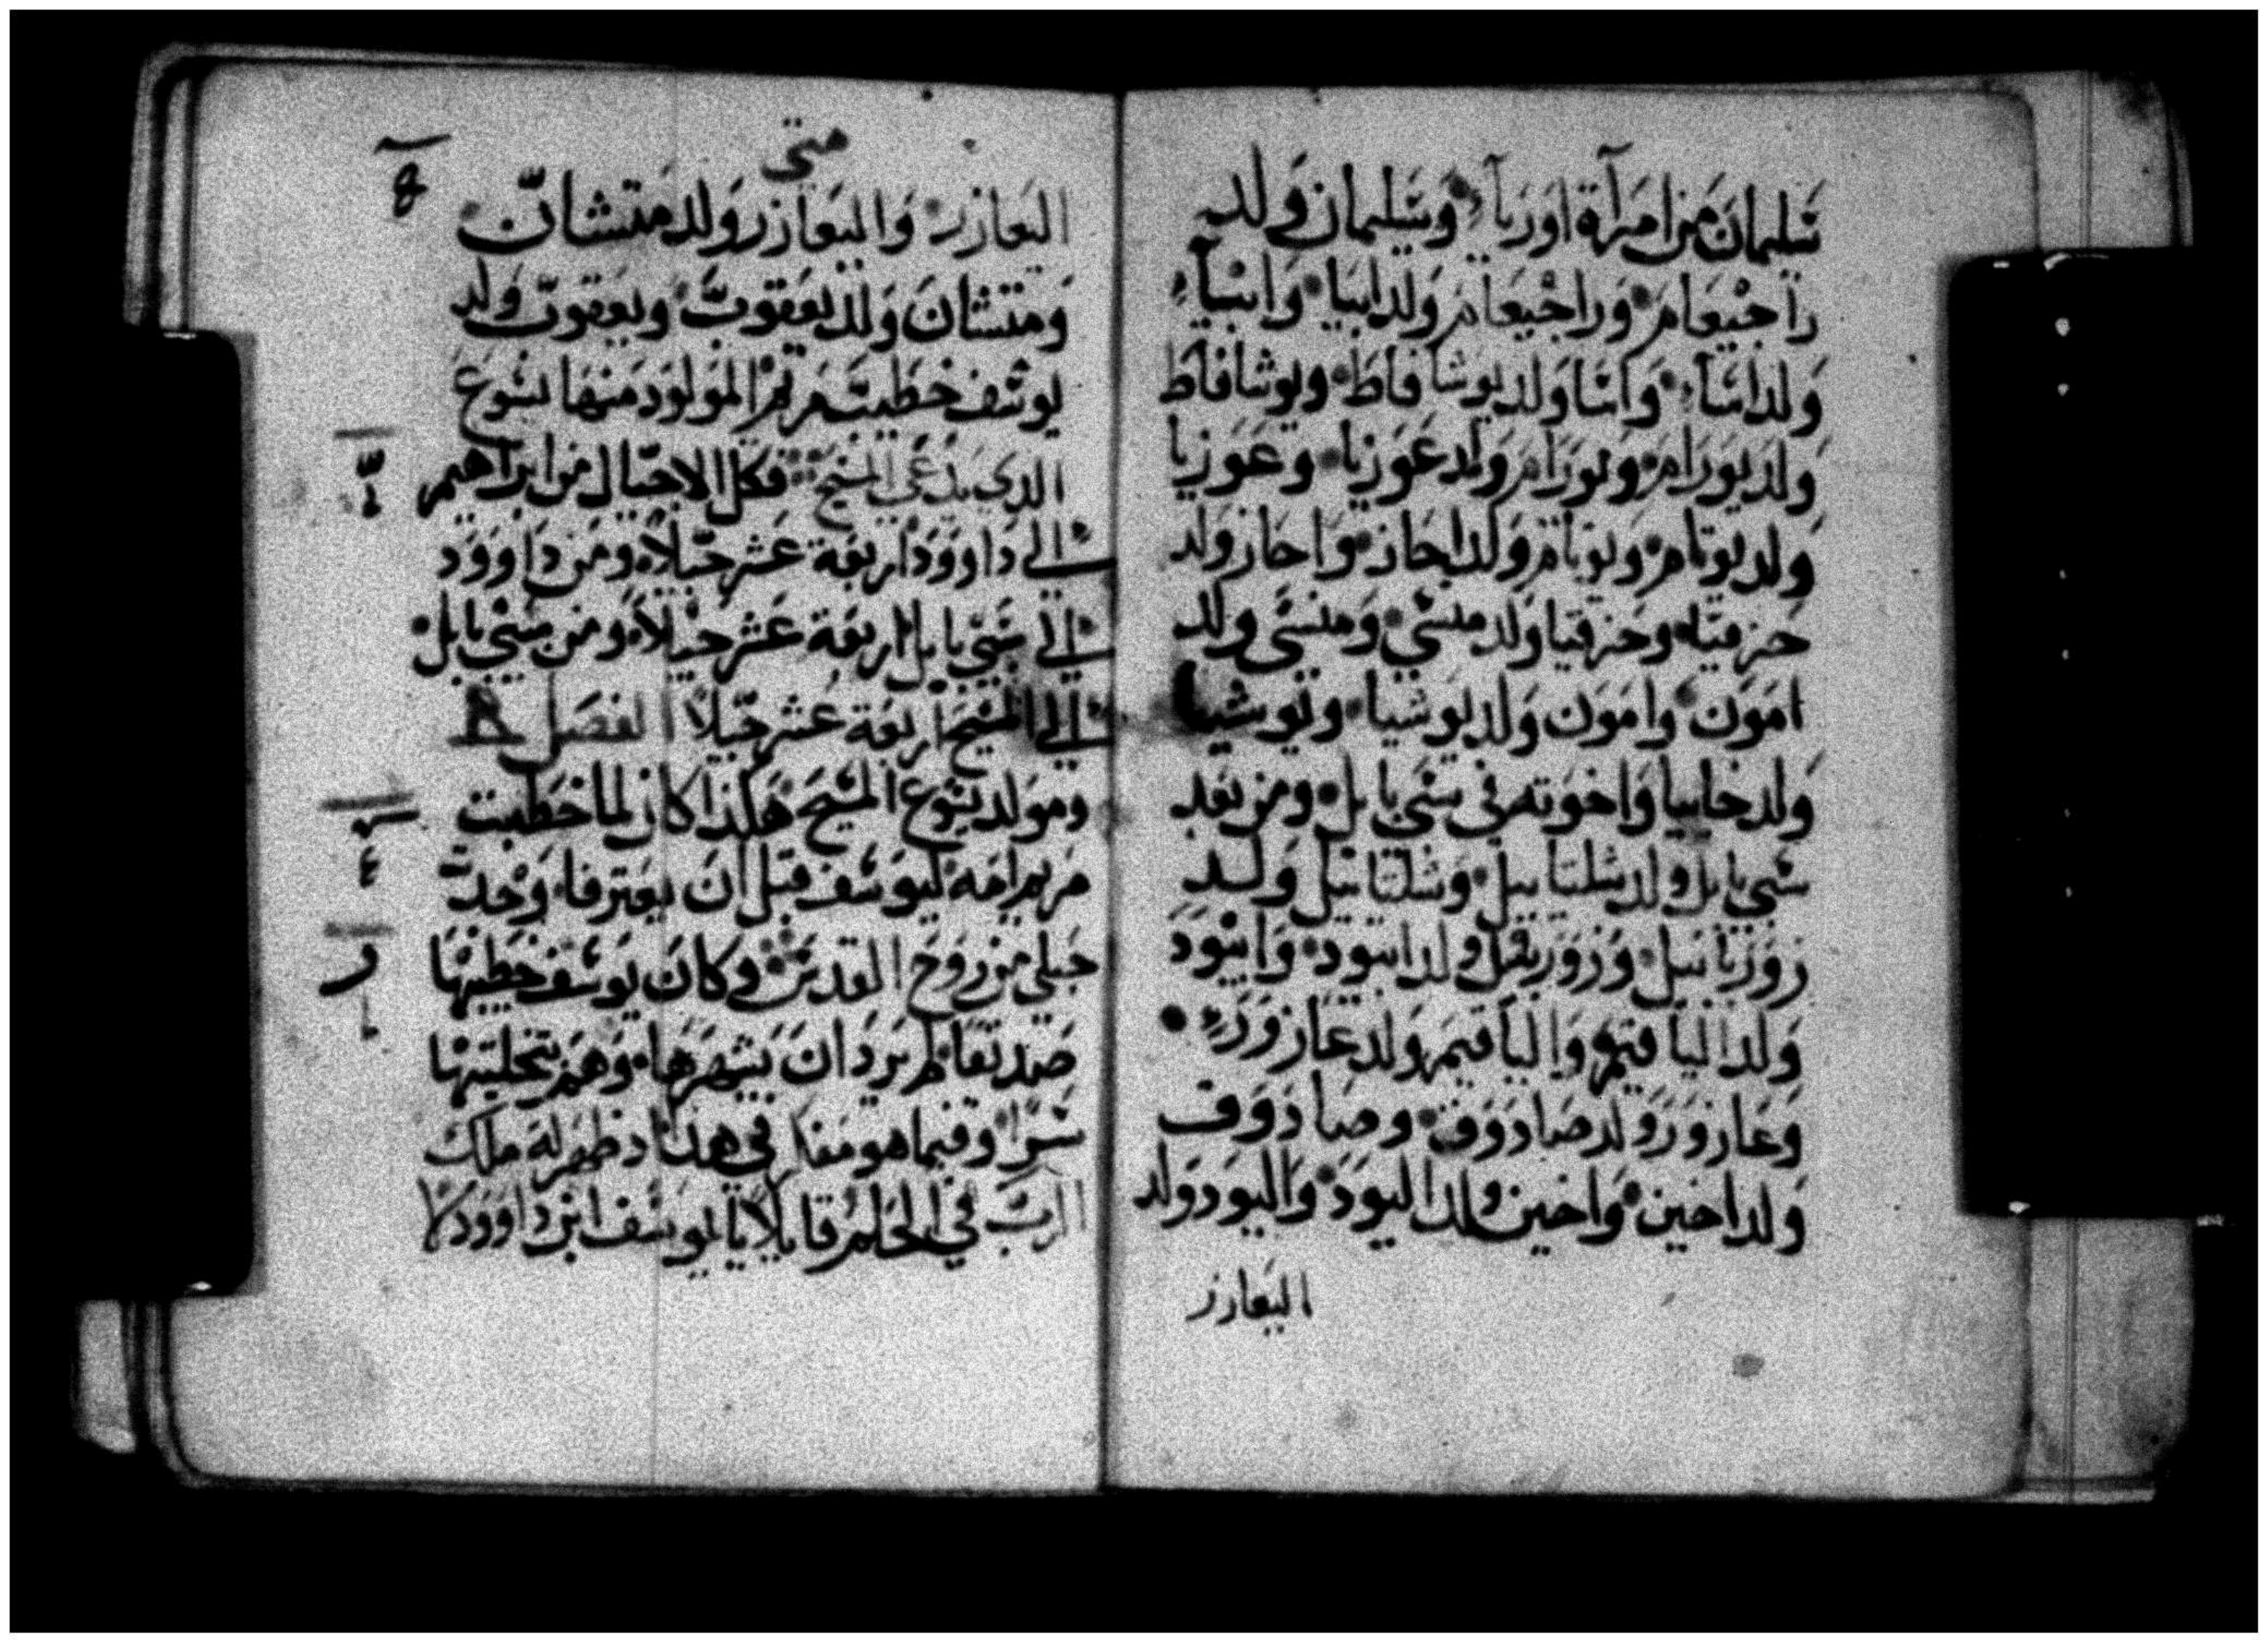 سليمان من امرآة اوريآء وسليمان ولد
راجيعام وراجيعام ولد ابيا وابيآء
ولد اسآء واسا ولد يوشافاط ويوشافاط
ولد يورام ويورام ولد عوزيا وعوزيا
ولد يوتام ويوتام ولد احاز واحاز ولد
حزقيا وحزقيا ولد منسي ومنسي ولد
امون وامون ولد يوشيا ويوشيا
ولد خانيا واخوته في سبي بابل ومن بعد
سبي بابل ولد شلتاييل وشلتاييل ولد
زوربابيل وزوربابل ولد ابيود وابيود
ولد الياقيم والياقيم ولد عازور
وعازور ولد صادوق وصادوق
ولد اخين واخين ولد اليود واليود ولد
اليعازر
متي
اليعازر واليعازر ولد متشان
ومتشان ولد يعقوب ويعقوب ولد
يوسف خطيب مريم المولود منها يسوع
الدي يدعي المسيح فكل الاجيال من ابراهيم
الي داوود اربعة عشر جيلا ومن داوود
الي سبي بابل اربعة عشر جيلا ومن سبي بابل
الي المسيح اربعة عشر جيلا الفصل
ومولد يسوع المسيح هكذا كان لما خطبت
مريم امه ليوسف قبل ان يعترفا وجدت
حبلي من روح القدس وكان يوسف خطيبها
صديقا لم يرد ان يشهرها وهم بتخليتها
سرا وفيما هو مفكر في هذا اد ظهر له ملاك
الرب في الحلم قايلا يا يوسف ابن داوود لا